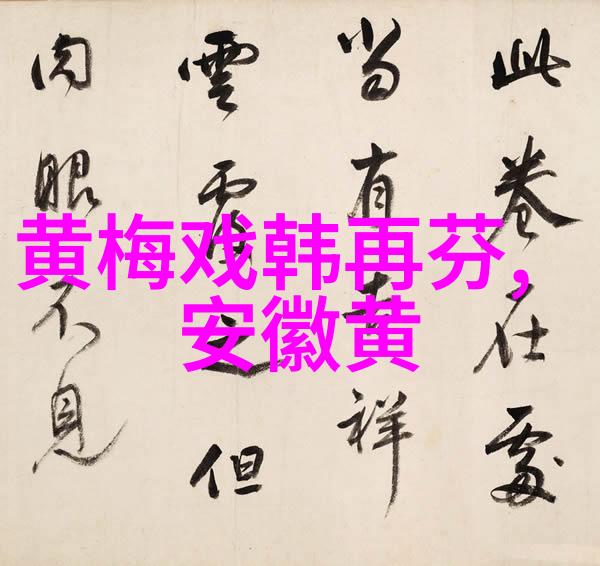 黄梅戏韩再芬，
安徽黄
此卷在處
当有吉祥
雲覆之但
肉眼不見